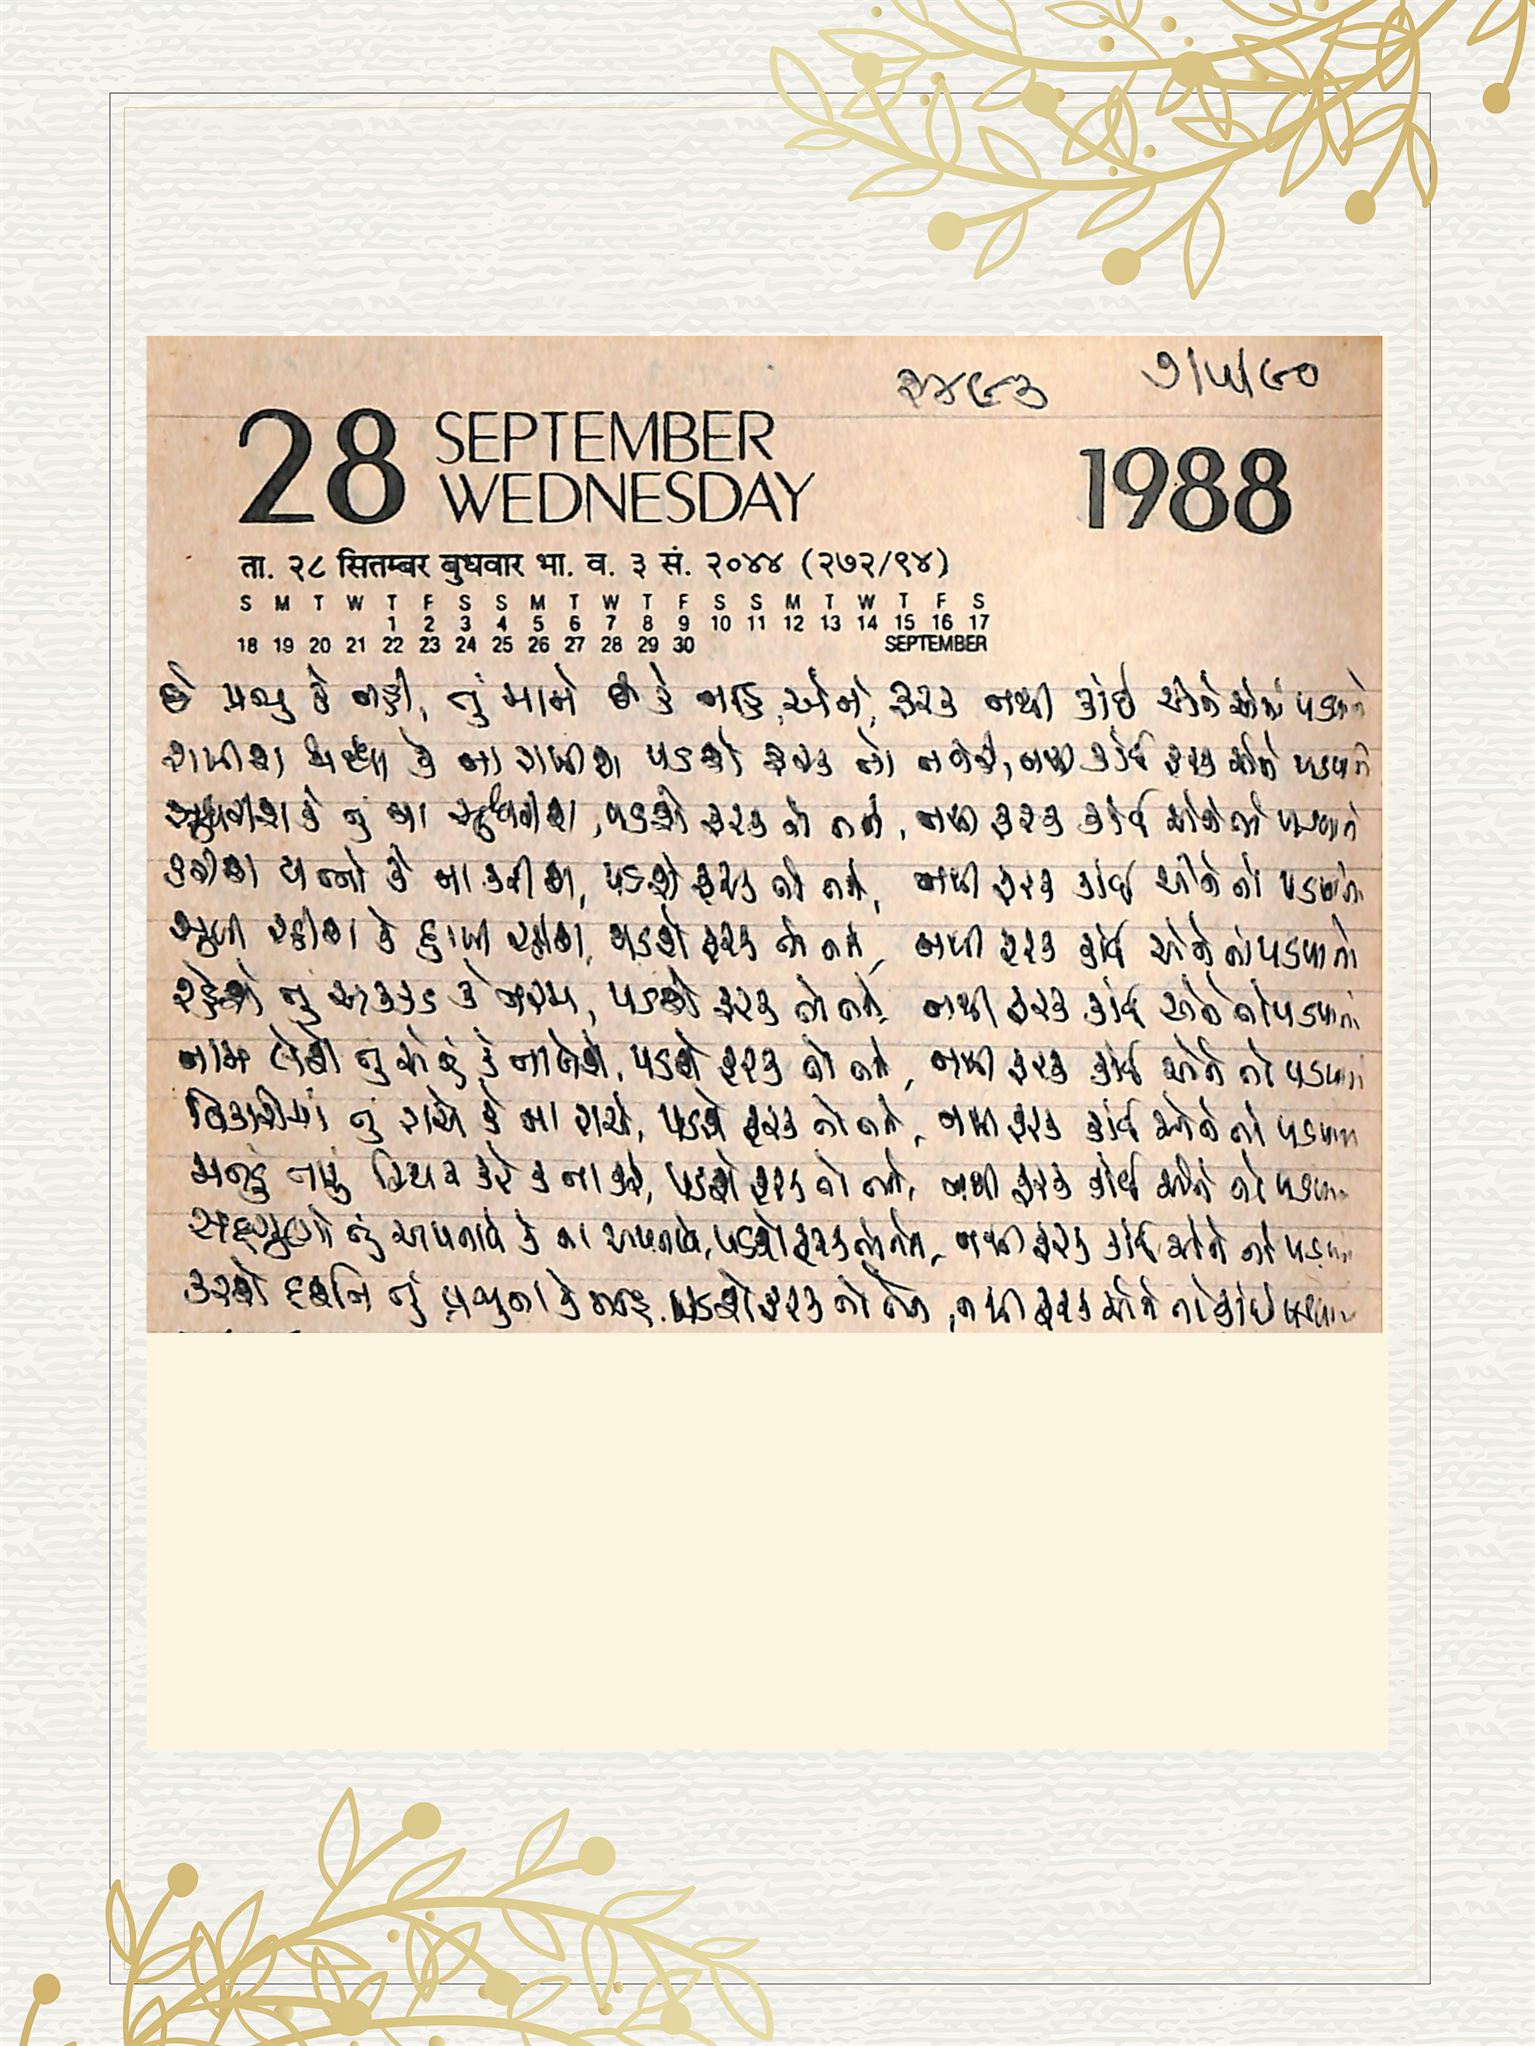 ૨૪૯૩ ૭/૫/૯૦
28 SEPTEMBER
WEDNESDAY
1988
ता. २८ सितम्बर बुधवार भा. व. ३ सं. २०४४ (२७२/९४)
S M T W T F S S M T W T F S S M T W T F S
1 2 3 4 5 6 7 8 9 10 11 12 13 14 15 16 17
18 19 20 21 22 23 24 25 26 27 28 29 30 SEPTEMBER
છે પ્રભુ કે નહીં, તું માને છે કે નહિ, એને, ફરક નથી કાંઈ એને એમાં પડવાનો
રાખીશ શ્રદ્ધા કે ના રાખીશ પડશે ફરક તો તને, નથી કાંઈ ફરક એને પડવાનો
સુધરીશ કે તું ના સુધરીશ, પડશે ફરક તો તને, નથી ફરક કાંઈ એને તો પડવાનો
કરીશ યત્નો કે ના કરીશ, પડશે ફરક તો તને, નથી ફરક કાંઈ એને તો પડવાનો
સુખી રહીશ કે દુઃખી રહીશ, પડશે ફરક તો તને, નથી ફરક કાંઈ એને તો પડવાનો
રહેશે તું અક્કડ કે નરમ, પડશે ફરક તો તને, નથી ફરક કાંઈ એને તો પડવાનો
નામ લેશે તું એનું કે ના લેશે, પડશે ફરક તો તને, નથી ફરક કાંઈ એને તો પડવાનો
વિકારોમાં તું રાચે કે ના રાચે, પડશે ફરક તો તને, નથી ફરક કાંઈ એને તો પડવાનો
મનડું તારું સ્થિર કરે કે ના કરે, પડશે ફરક તો તને, નથી ફરક કાંઈ એને તો પડવાનો
સદ્દગુણો તું અપનાવે કે ના અપનાવે, પડશે ફરક તો તને, નથી ફરક કાંઈ એને તો પડવાનો
કરશે દર્શન તું પ્રભુના કે નહિ, પડશે ફરક તો તને, નથી ફરક એને તો કાંઈ પડવાનો